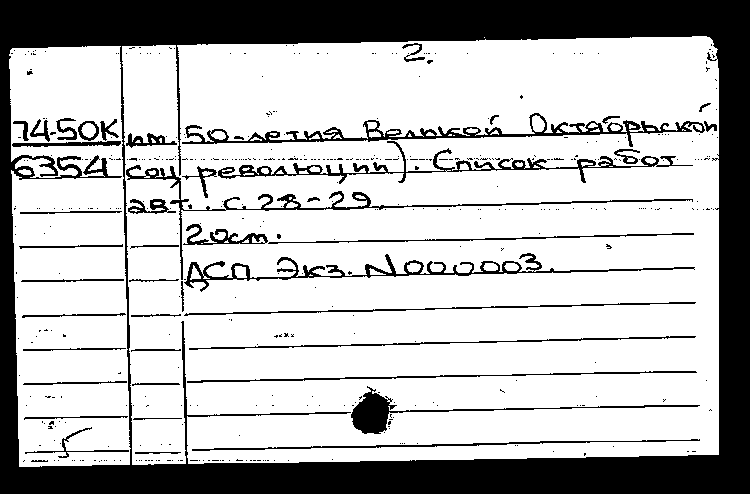 2.
74-50К им. 50-летия Великой Октябрьской
6354 соц. революции). Список работ
авт.: с. 28-29.
20см.
ДСП. Экз. N000003.
5